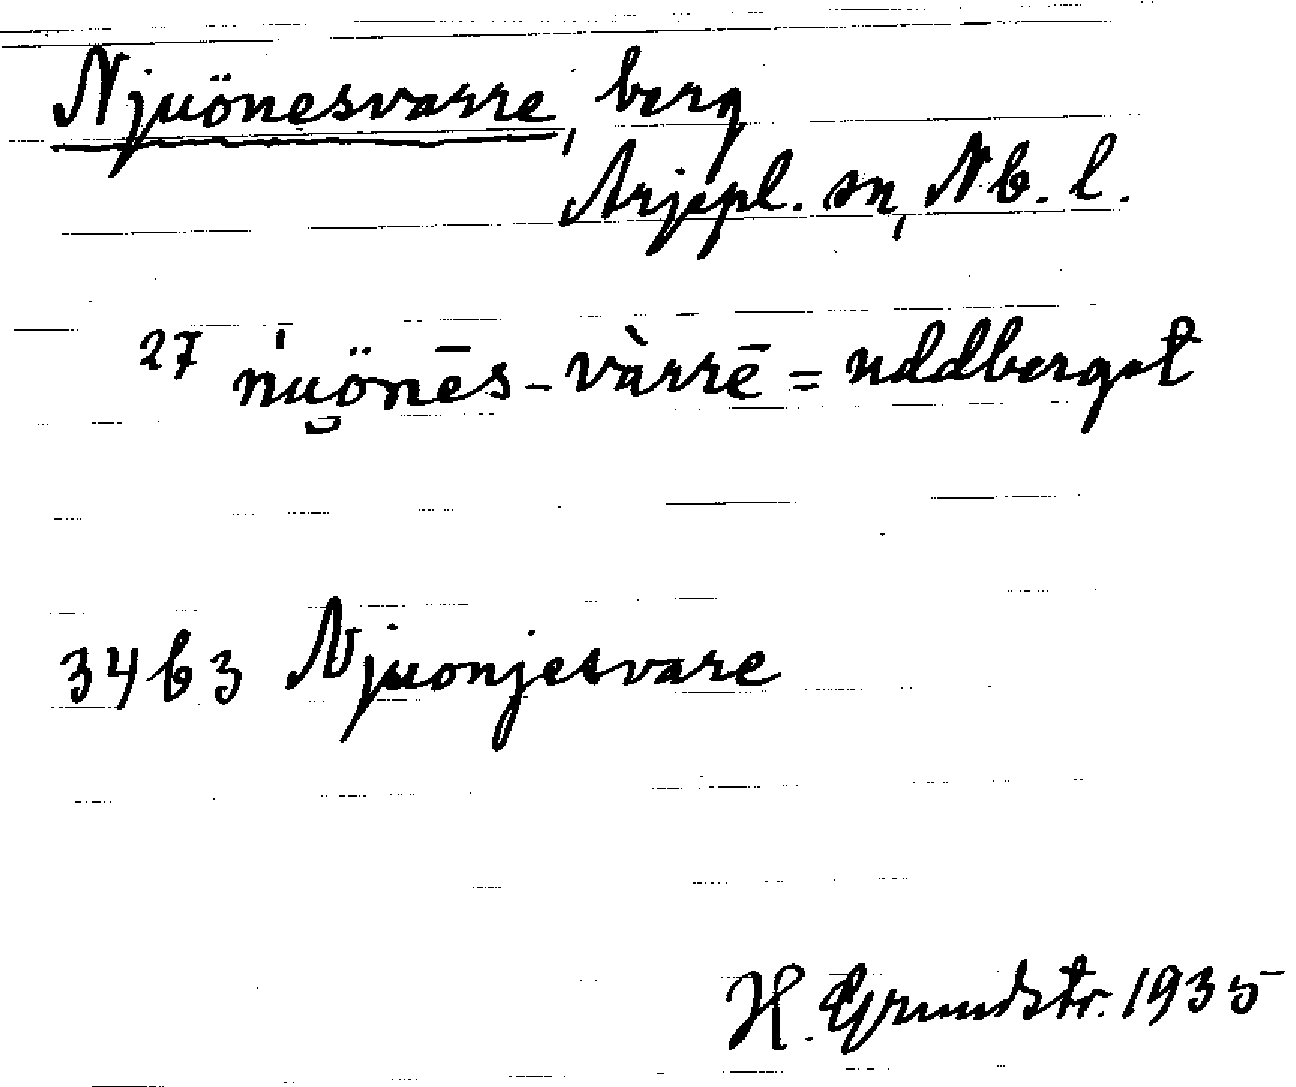 Njuönesvarre, berg
Arjepl. sn, Nb. l.
27 ńu̯önēs-vàrrē = uddberget
34b3 Njuonjesvare
H. Grundstr. 1935